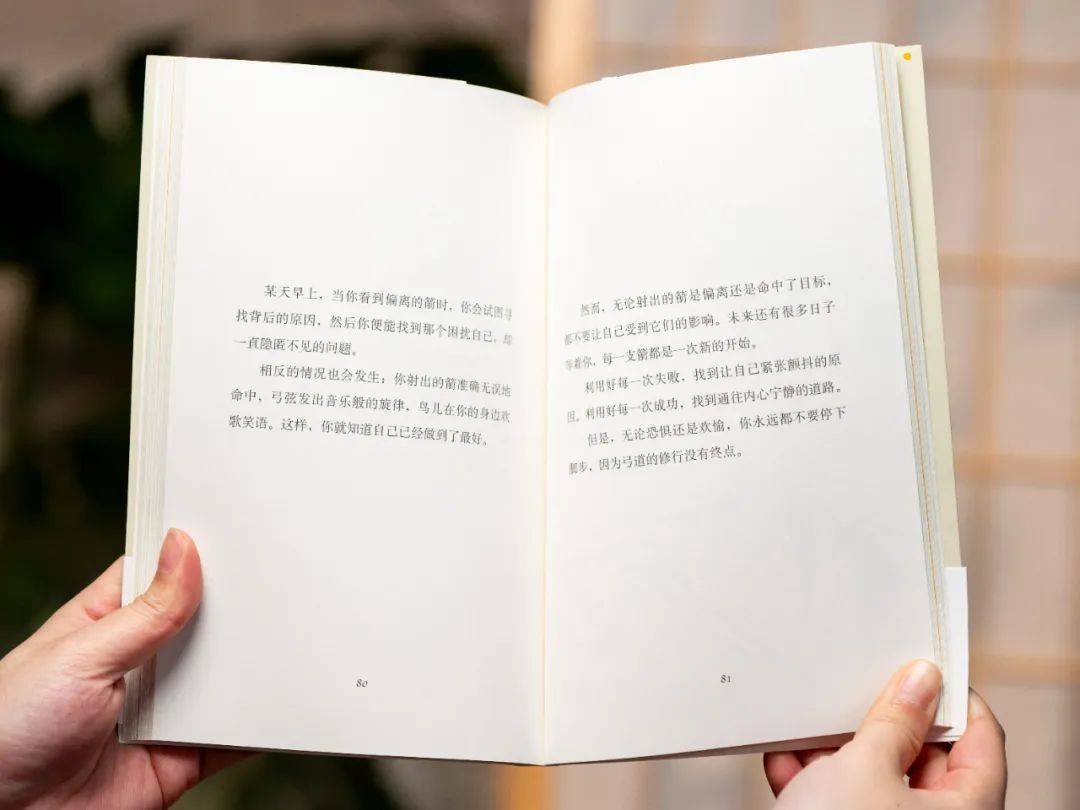 某天早上，当你看到偏离的箭时，你会试图寻
找背后的原因，然后你便能找到那个困扰自己，却
一直隐匿不见的问题。
相反的情况也会发生：你射出的箭准确无误地
命中，弓弦发出音乐般的旋律，鸟儿在你的身边欢
歌笑语。这样，你就知道自己已经做到了最好。
80
然而，无论射出的箭是偏离还是命中了目标，
都不要让自己受到它们的影响。未来还有很多日子
等着你，每一支箭都是一次新的开始。
利用好每一次失败，找到让自己紧张颤抖的原
因。利用好每一次成功，找到通往内心宁静的道路。
但是，无论恐惧还是欢愉，你永远都不要停下
脚步，因为弓道的修行没有终点。
81